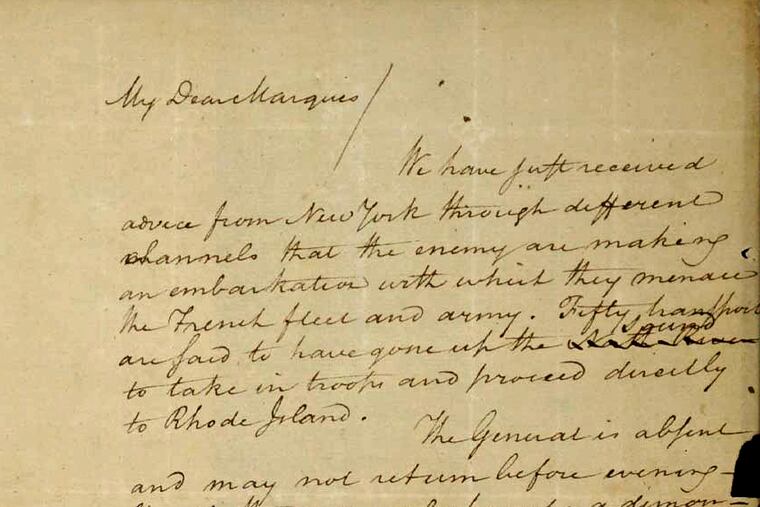 My Dear Marquis
We have just received
advice from New York through different
channels that the enemy are making
an embarkation with which they menace
the French fleet and army. Fifty transports
are said to have gone up the North River Sound
to take in troops and proceed directly
to Rhode Island.
The General is absent
and may not return before evening